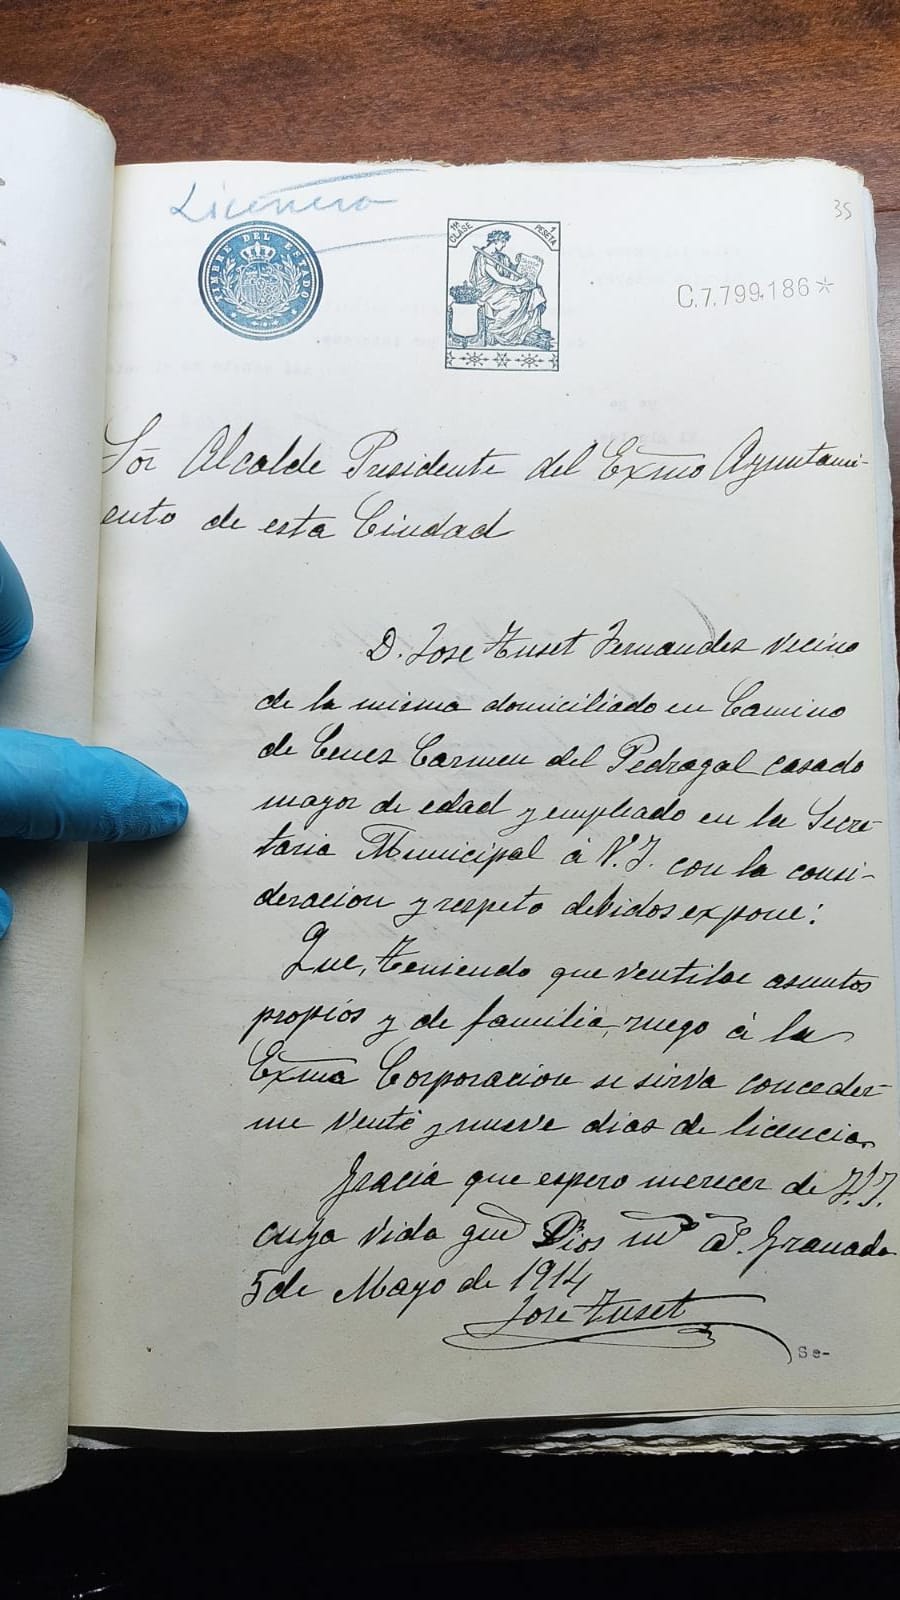 Licencia
35
TIMBRE DEL ESTADO
11ª CLASE 1 PESETA
C.7.799.186*
Sor Alcalde Presidente del Exmo Ayuntami-
ento de esta Ciudad
D. Jose Tuset Fernandes vecino
de la misma domiciliado en Camino
de Cenes Carmen del Pedragal casado
mayor de edad y empleado en la Secre-
taria Municipal á V.I. con la consi-
deracion y respeto debidos expone:
Que, teniendo que ventilar asuntos
propios y de familia, ruego á la
Exma Corporacion se sirva conceder-
me venti y nueve dias de licencia.
Gracia que espero merecer de V.I.
cuya vida gue Dios ms as. Granada
5 de Mayo de 1914
Jose Tuset
Se-